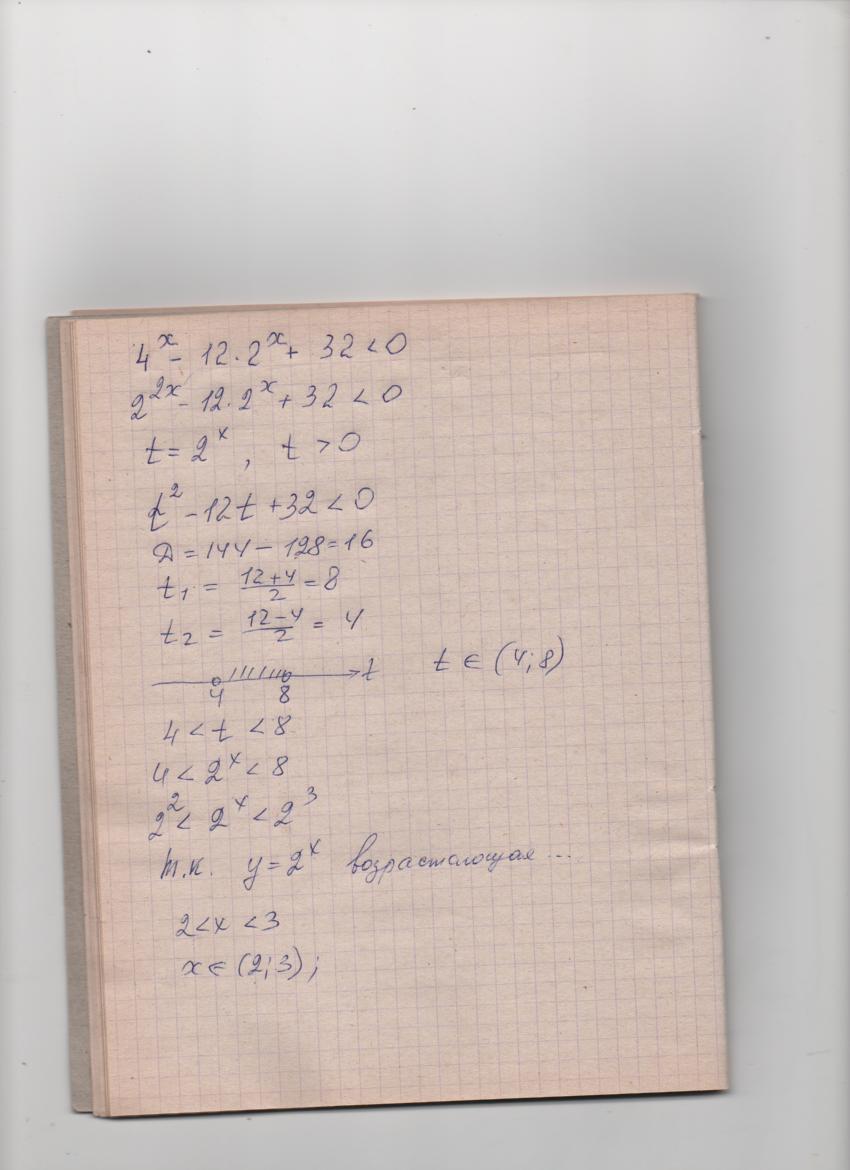 4^x - 12·2^x + 32 < 0
2^{2x} - 12·2^x + 32 < 0
t = 2^x, t > 0
t^2 - 12t + 32 < 0
Д = 144 - 128 = 16
t_1 = \frac{12+4}{2} = 8
t_2 = \frac{12-4}{2} = 4
4 8 t t ∈ (4; 8)
4 < t < 8
4 < 2^x < 8
2^2 < 2^x < 2^3
т.к. y = 2^x возрастающая ...
2 < x < 3
x ∈ (2; 3);